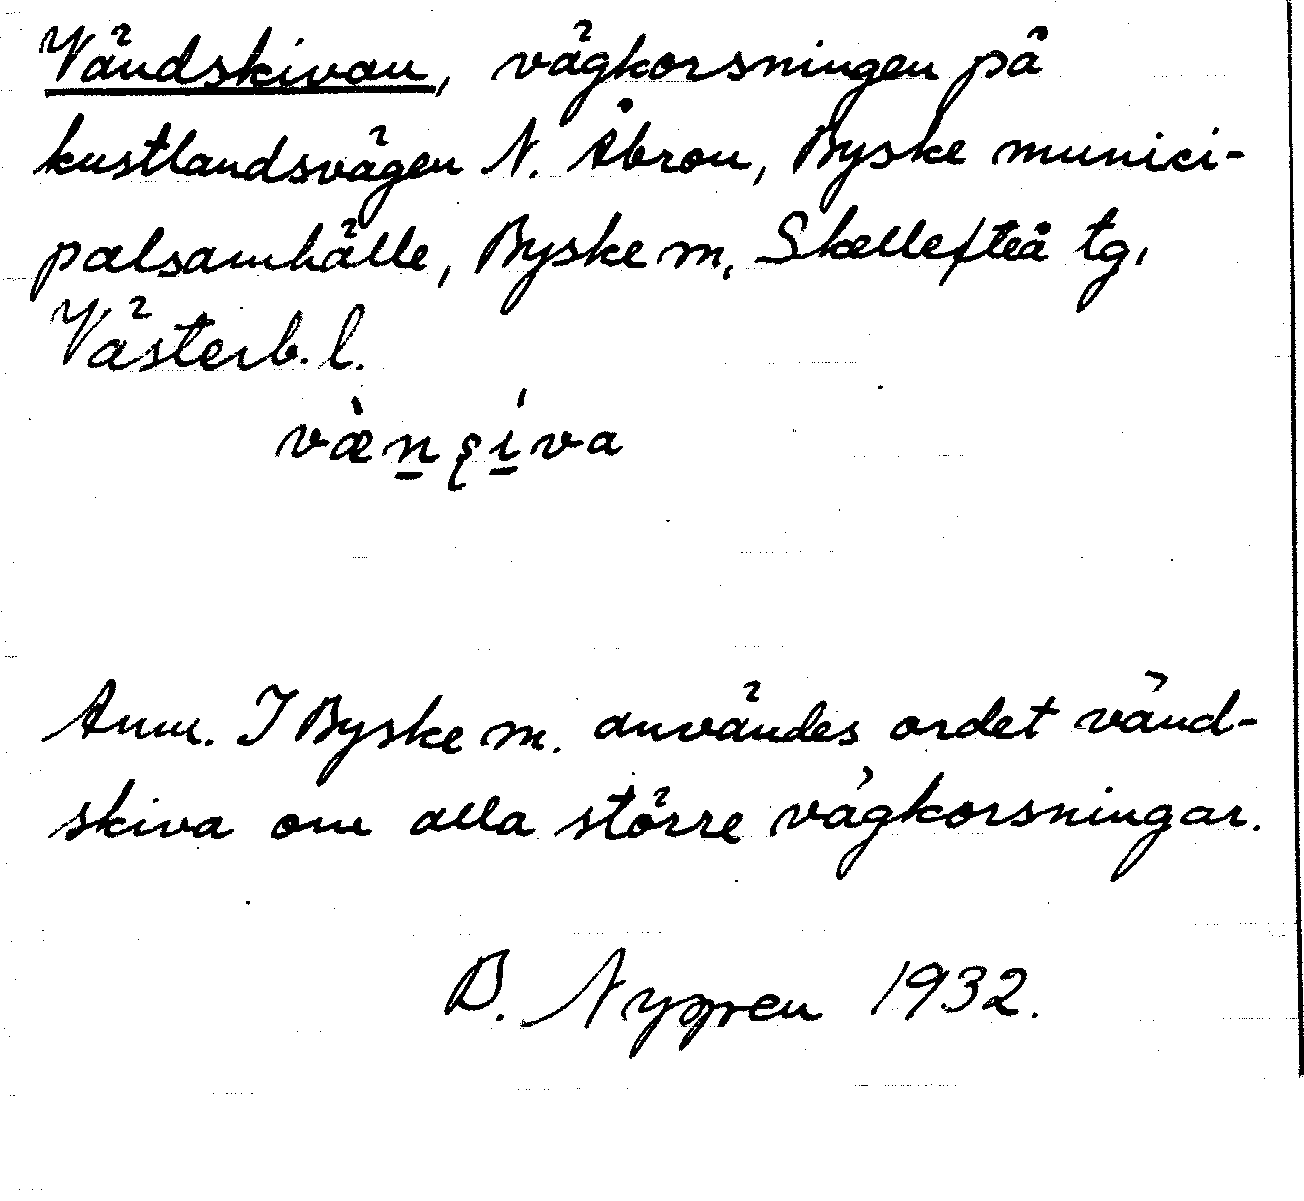 Vändskivan, vägkorsningen på
kustlandsvägen N. Åbron, Byske munici-
palsamhälle, Byske m, Skellefteå tg,
Västerb. l.
væ̀n̲ʂí̲va
Anm. I Byske m. användes ordet vänd-
skiva om alla större vägkorsningar.
B. Nygren 1932.